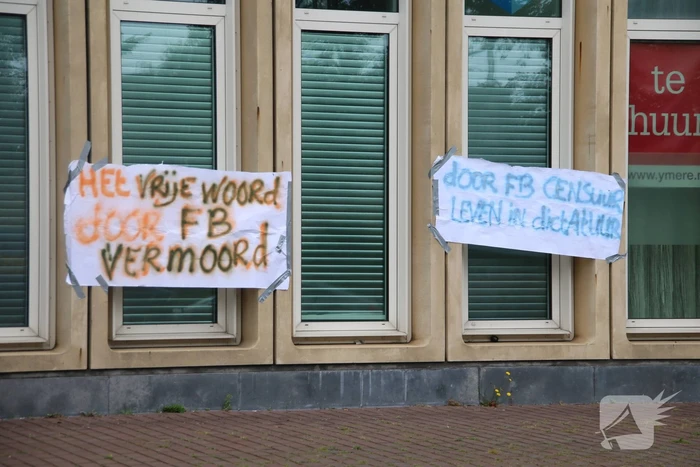 HET VRIJE WOORD
DOOR FB
VERMOORD
DOOR FB CENSUUR
LEVEN IN dictAtuur
te
huur
www.ymere.n